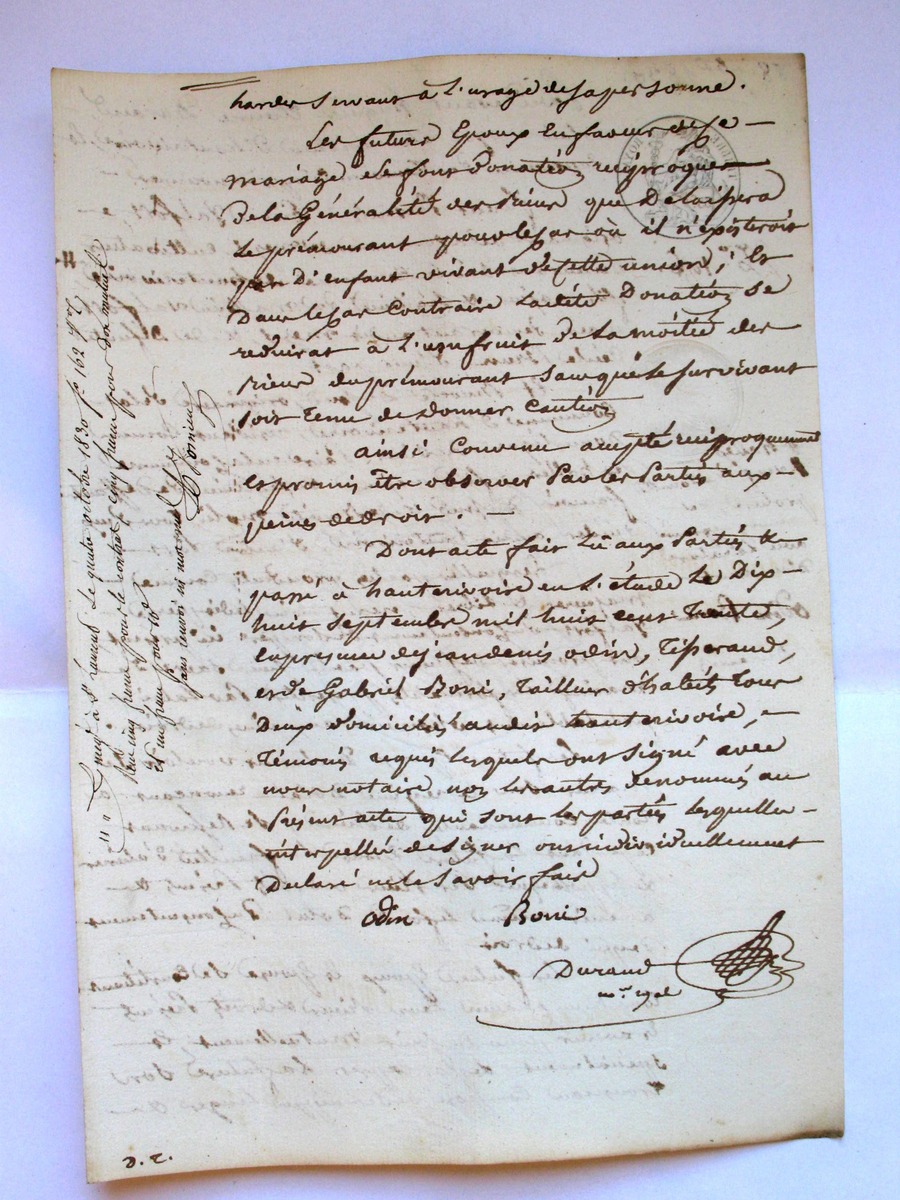 hardes Servant à L'usage de sa personne.
Les futurs Epoux en faveur de ce
mariage se font donation réciproque
De la Généralité des Biens que Délaissera
Le prémourant pour le cas où il n'existeroit
pas D'enfant vivant de cette union; Et
Dans le cas Contraire Ladite Donation se
reduirat à L'usufruit De la moitié des
Biens du prémourant sans que le Survivant
soit Tenu de donner Caution
ainsi Convenu accepté réciproquement
et promis être observer Par les Parties aux
peines de droit.
Dont acte fait Lû aux Parties &
passé à hauterivoire en L'étude Le Dix-
huit septembre mil huit cent Trente,
en presence de jean denis odin, Tisserand,
et de Gabriel Boni, Tailleur d'habits Tous
Deux domiciliés audit hauterivoire,
Témoins requis lesquels ont signé avec
nous notaire non les autres dénommés au
Présent acte qui sont les parties lesquelles
interpellés de signer ont individuellement
Declaré ne le savoir fair
odin Boni
Durand
D. T.
Le quatre octobre 1830 f° 162
cinq francs pour le contrat, cinq francs pour don mutuel
et un franc pour 10e
sans renvoi ni mot nul